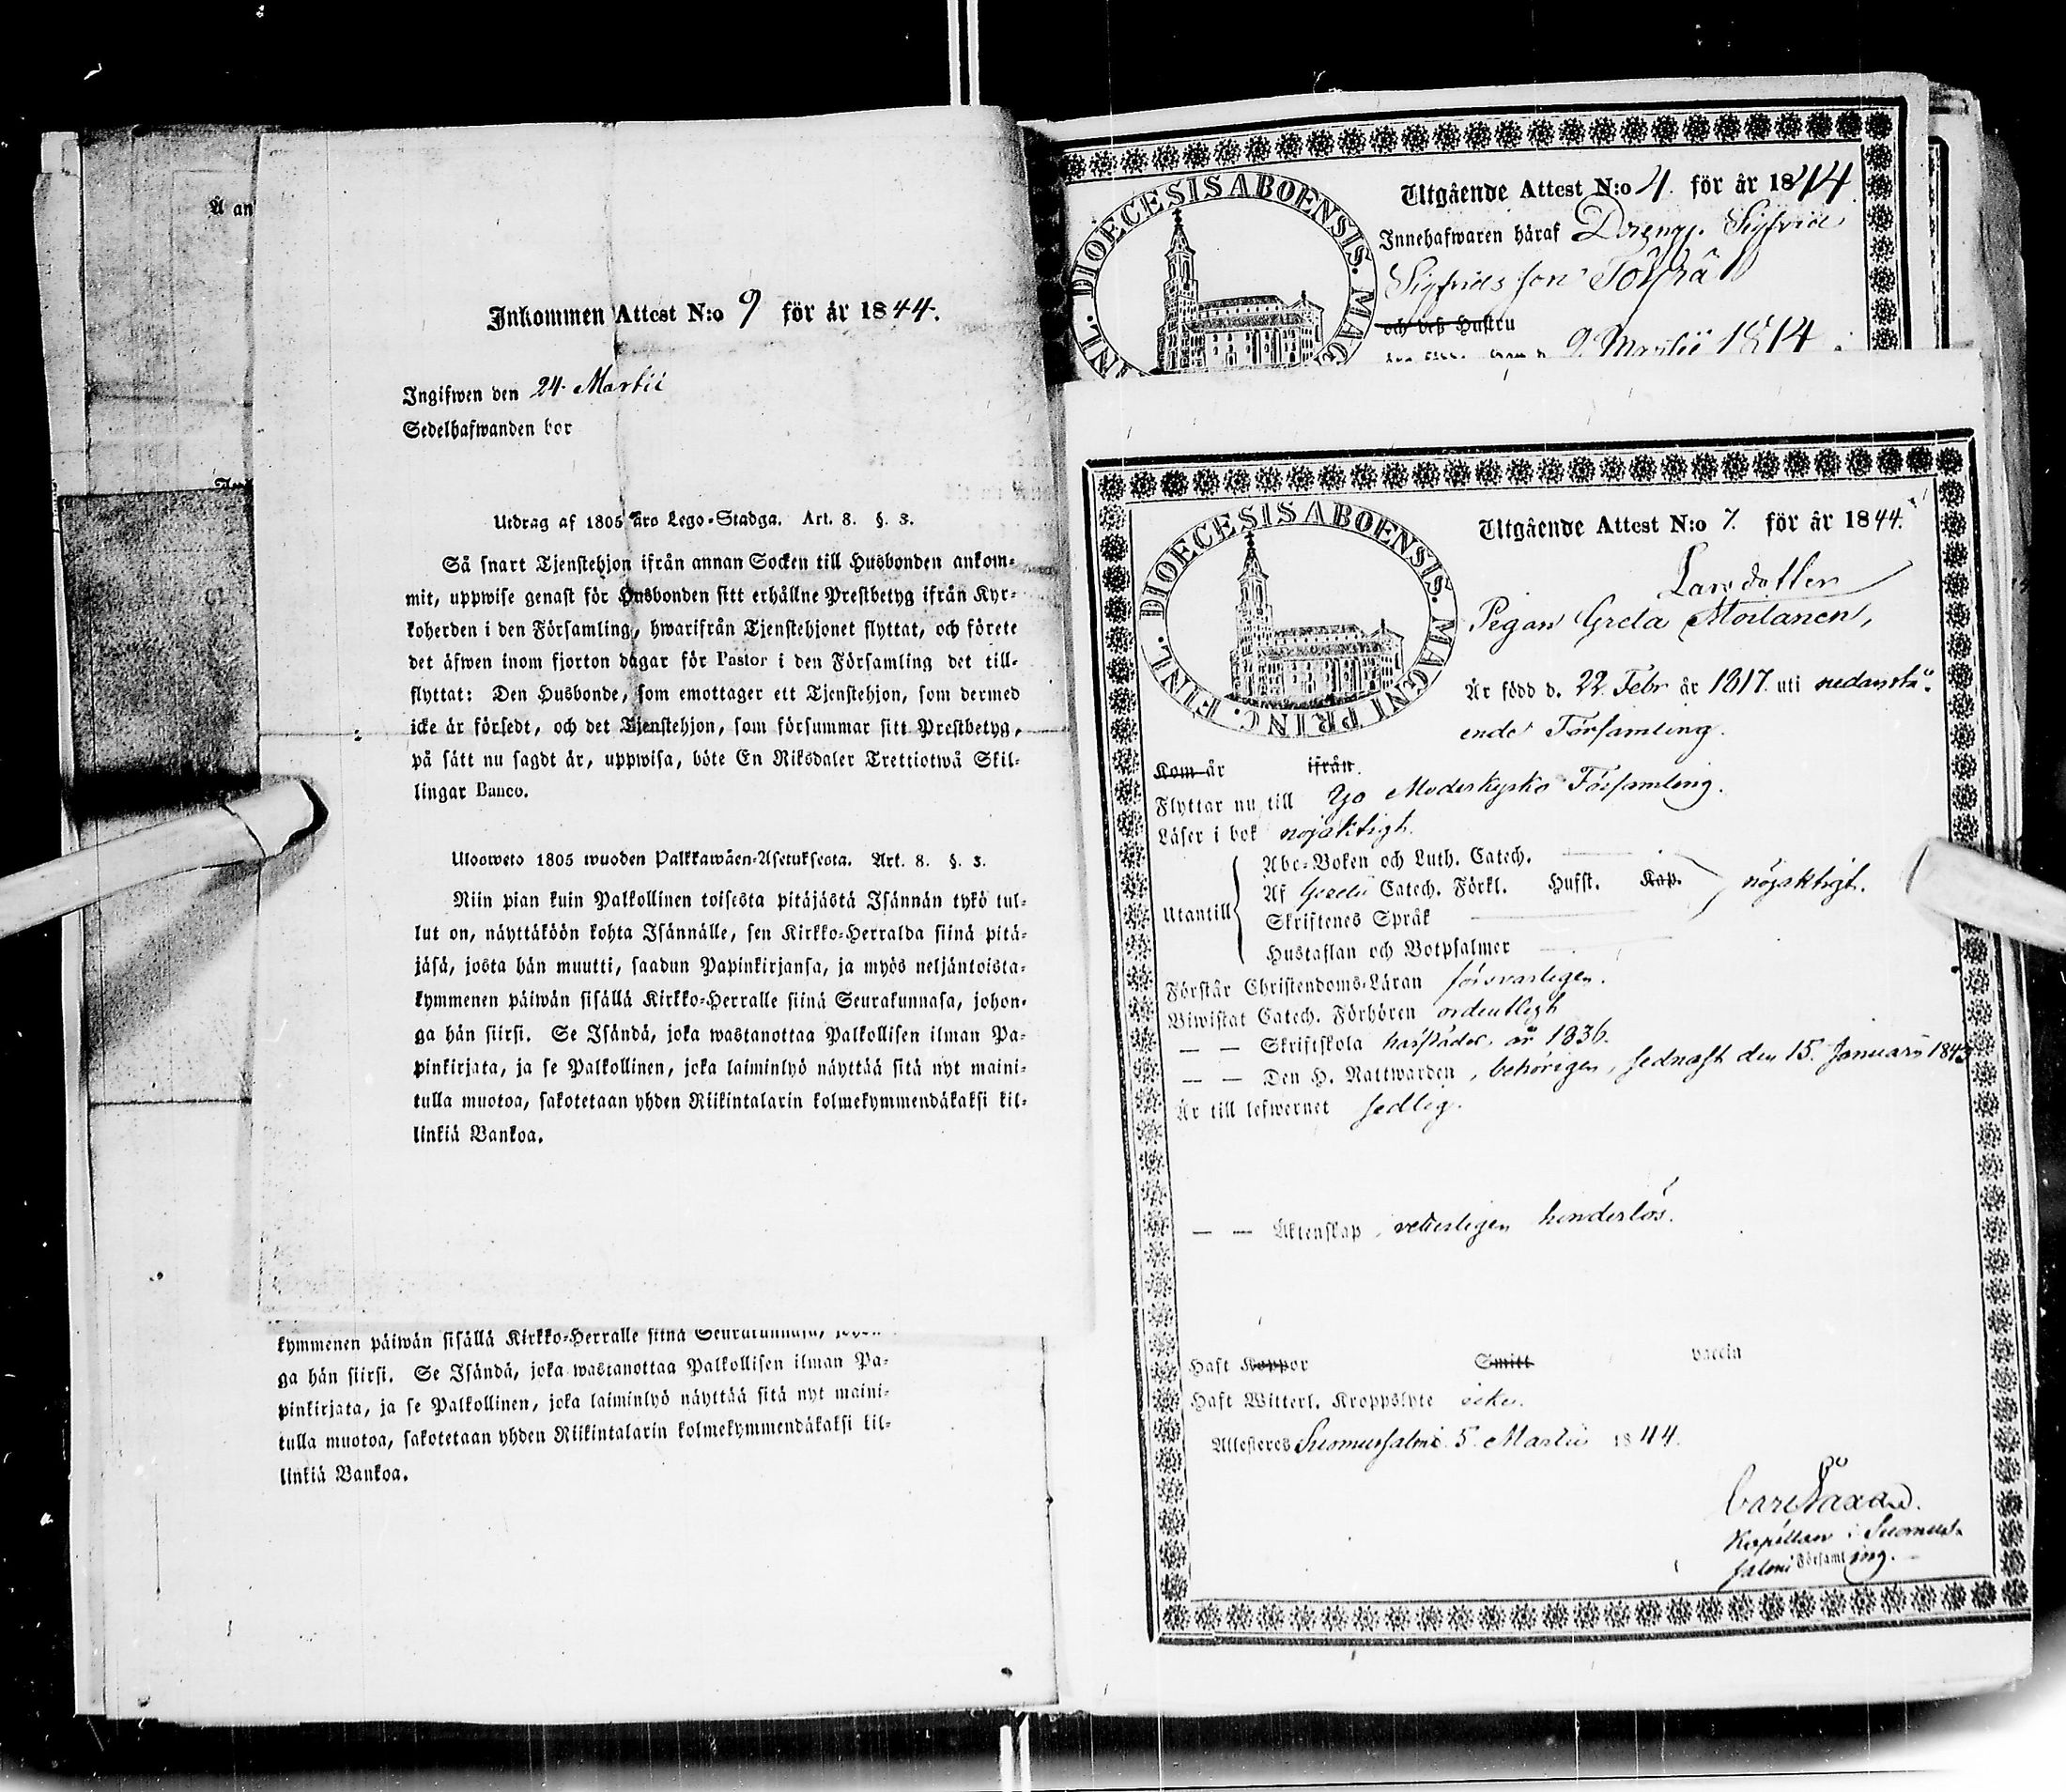 A an
Inkommen Attest N:o 9 för år 1844.
Ingifwen den 24. Martii
Sedelhafwanden bor
Utdrag af 1805 års Lego-Stadga. Art. 8. §. 3.
Så snart Tjenstehjon ifrån annan Socken till Husbonden ankom-
mit, uppwise genast för Husbonden sitt erhållne Prestbetyg ifrån Kyr-
koherden i den Församling, hwarifrån Tjenstehjonet flyttat, och förete
det äfwen inom fjorton dagar för Pastor i den Församling det till-
flyttat: Den Husbonde, som emottager ett Tjenstehjon, som dermed
icke är försedt, och det Tjenstehjon, som försummar sitt Prestbetyg,
på sätt nu sagdt är, uppwisa, böte En Riksdaler Trettiotwå Skil-
lingar Banco.
Ulosweto 1805 wuoden Palkkawäen-Asetuksesta. Art. 8. §. 3.
Niin pian kuin Palkollinen toisesta pitäjästä Isännän tykö tul-
lut on, näyttäköön kohta Isännälle, sen Kirkko-Herralda siinä pitä-
jäsä, josta hän muutti, saadun Papinkirjansa, ja myös neljäntoista-
kymmenen päiwän sisällä Kirkko-Herralle siinä Seurakunnasa, johon-
ga hän siirsi. Se Isändä, joka wastanottaa Palkollisen ilman Pa-
pinkirjata, ja se Palkollinen, joka laiminlyö näyttää sitä nyt maini-
tulla muotoa, sakotetaan yhden Riikintalarin kolmekymmendäkaksi kil-
linkiä Bankoa.
kymmenen päiwän sisällä Kirkko-Herralle siinä Seurakunnasa, johon-
ga hän siirsi. Se Isändä, joka wastanottaa Palkollisen ilman Pa-
pinkirjata, ja se Palkollinen, joka laiminlyö näyttää sitä nyt maini-
tulla muotoa, sakotetaan yhden Riikintalarin kolmekymmendäkaksi kil-
linkiä Bankoa.
DIOECESIS ABOENSIS. MAG INL.
Utgående Attest N:o 4. för år 1844
Innehafwaren häraf Drengen Sigfrid
Sigfrids son
och deß Hustru
9. Martii 1814
DIOECESIS ABOENSIS. MAGNI PRINC. FINL.
Utgående Attest N:o 7. för år 1844.
Larsdotter
Pigan Greta Moilanen,
Är född d. 22. Febr år 1817. uti nedanstå-
ende Församling.
Kom år ifrån
Flyttar nu till Ijo Moderkyrko Församling.
Läser i bok nöjaktigt.
Utantill
Abc-Boken och Luth. Catech.
Af Catech. Förkl. Hufst. Kap. nöjaktigt.
Skriftenes Språk
Hustaflan och Botpsalmer
Förstår Christendoms-Läran försvarligen.
Biwistat Catech. Förhören ordentligt
— — Skriftskola härstädes år 1836.
— — Den H. Nattwarden, behörigen, sednast den 15. Januarii 1843
Är till lefwernet sedlig.
— — Äktenskap, veterligen hinderlös.
Haft Koppor Smitt vaccin
Haft Witterl. Kroppslyte icke.
Attesteres Suomussalmi 5. Martii 1844.
Carl Saxa
Kapellan i Suomus-
salmi Församling.